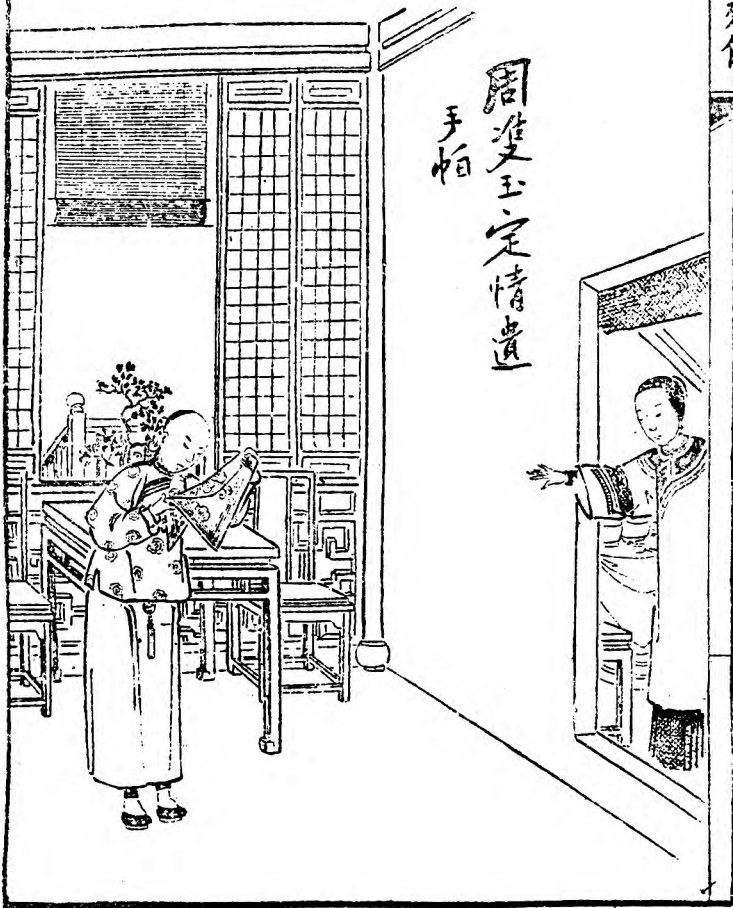 周雙玉定情遺
手帕